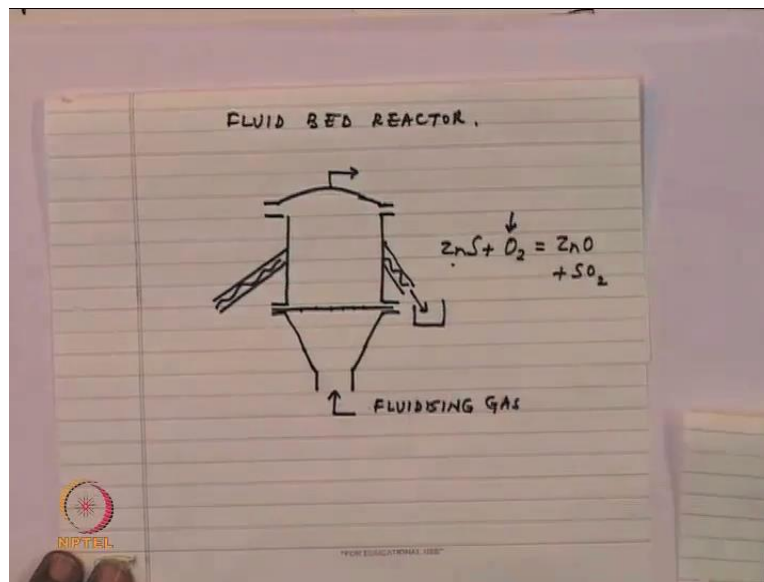 FLUID BED REACTOR.
ZnS + O2 = ZnO
+ SO2
FLUIDISING GAS
NPTEL
"FOR EDUCATIONAL USE"